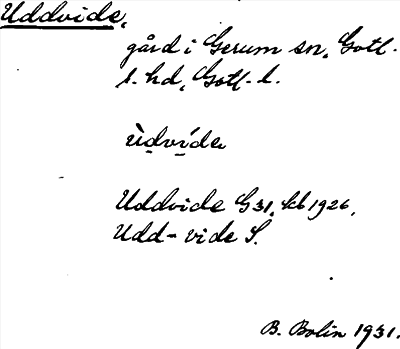 Uddvide,
gård i Gerum sn, Gotl.
s. hd, Gotl. l.
ùdvíde
Uddvide G31, kb 1926,
Udd-vide S.
B. Bolin 1931.